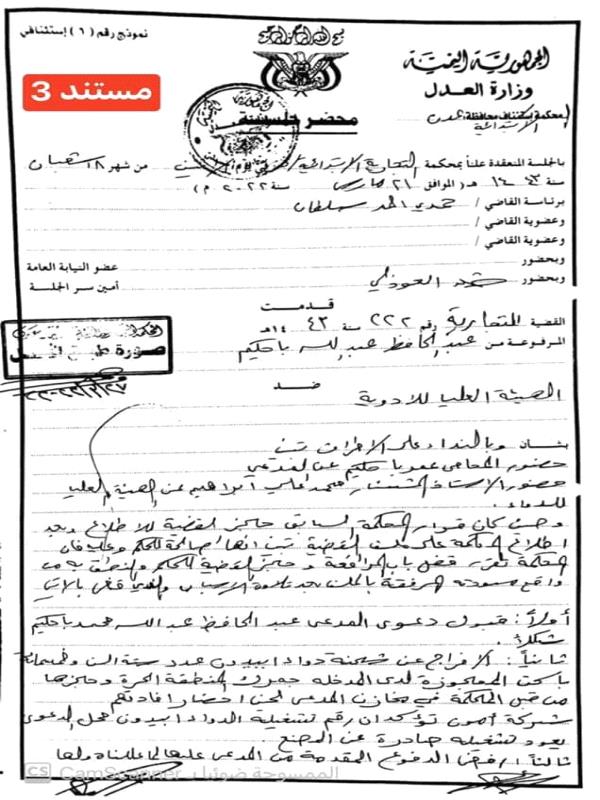 نموذج رقم (١) إستئنافي
بسم الله الرحمن الرحيم
الجمهورية اليمنية
وزارة العدل
مستند 3
محكمة إستئناف محافظة عدن
الابتدائية
محضر جلسة
بالجلسة المنعقدة علناً بمحكمة التجارية الابتدائية من شهر ١٨ شعبان
سنة ١٤٤٣ هـ (الموافق ٢١ مارس سنة ٢٠٢٢ م)
برئاسة القاضي / حمدي احمد سلطان
وعضوية القاضي /
وعضوية القاضي /
وبحضور عضو النيابة العامة
وبحضور العوذلي أمين سر الجلسة
قدمت
القضية التجارية رقم ٢٢٢ سنة ١٤٤٣ هـ
المرفوعة من عبدالحافظ عبدالله باحكيم
صورة طبق الأصل
ضد
الهيئة العليا للادوية
وبالنداء على الاطراف تبين
حضور المحامي باحكيم عن المدعي
حضور الاستاذ عن الهيئة العليا
للدواء
وحيث كان قرار المحكمة السابق حجز القضية للاطلاع وبعد
اطلاع المحكمة على ملف القضية تبين انها صالحة للحكم وعليه فان
المحكمة تقرر قفل باب المرافعة وحجز القضية للحكم والنطق به من
واقع مسودته المرفقة بالملف بعد تلاوة الاسباب والذي قضى بالاتي
أولاً: قبول دعوى المدعي عبدالحافظ عبدالله محمد باحكيم
شكلاً.
ثانياً: الافراج عن شحنة دواء عدد ستة الف وخمسمائة
باكت المحجوزة لدى جمرك المنطقة الحرة وحجزها
من قبل المحكمة في مخازن المدعي لحين احضار افادتهم
شركة تؤكد ان رقم تشغيلة الدواء محل الدعوى
يعود لتشغيلة صادرة عن المصنع.
ثالثاً: رفض الدفوع المقدمة من المدعى عليها لما عللناه ولها
CS CamScanner الممسوحة ضوئيا بـ